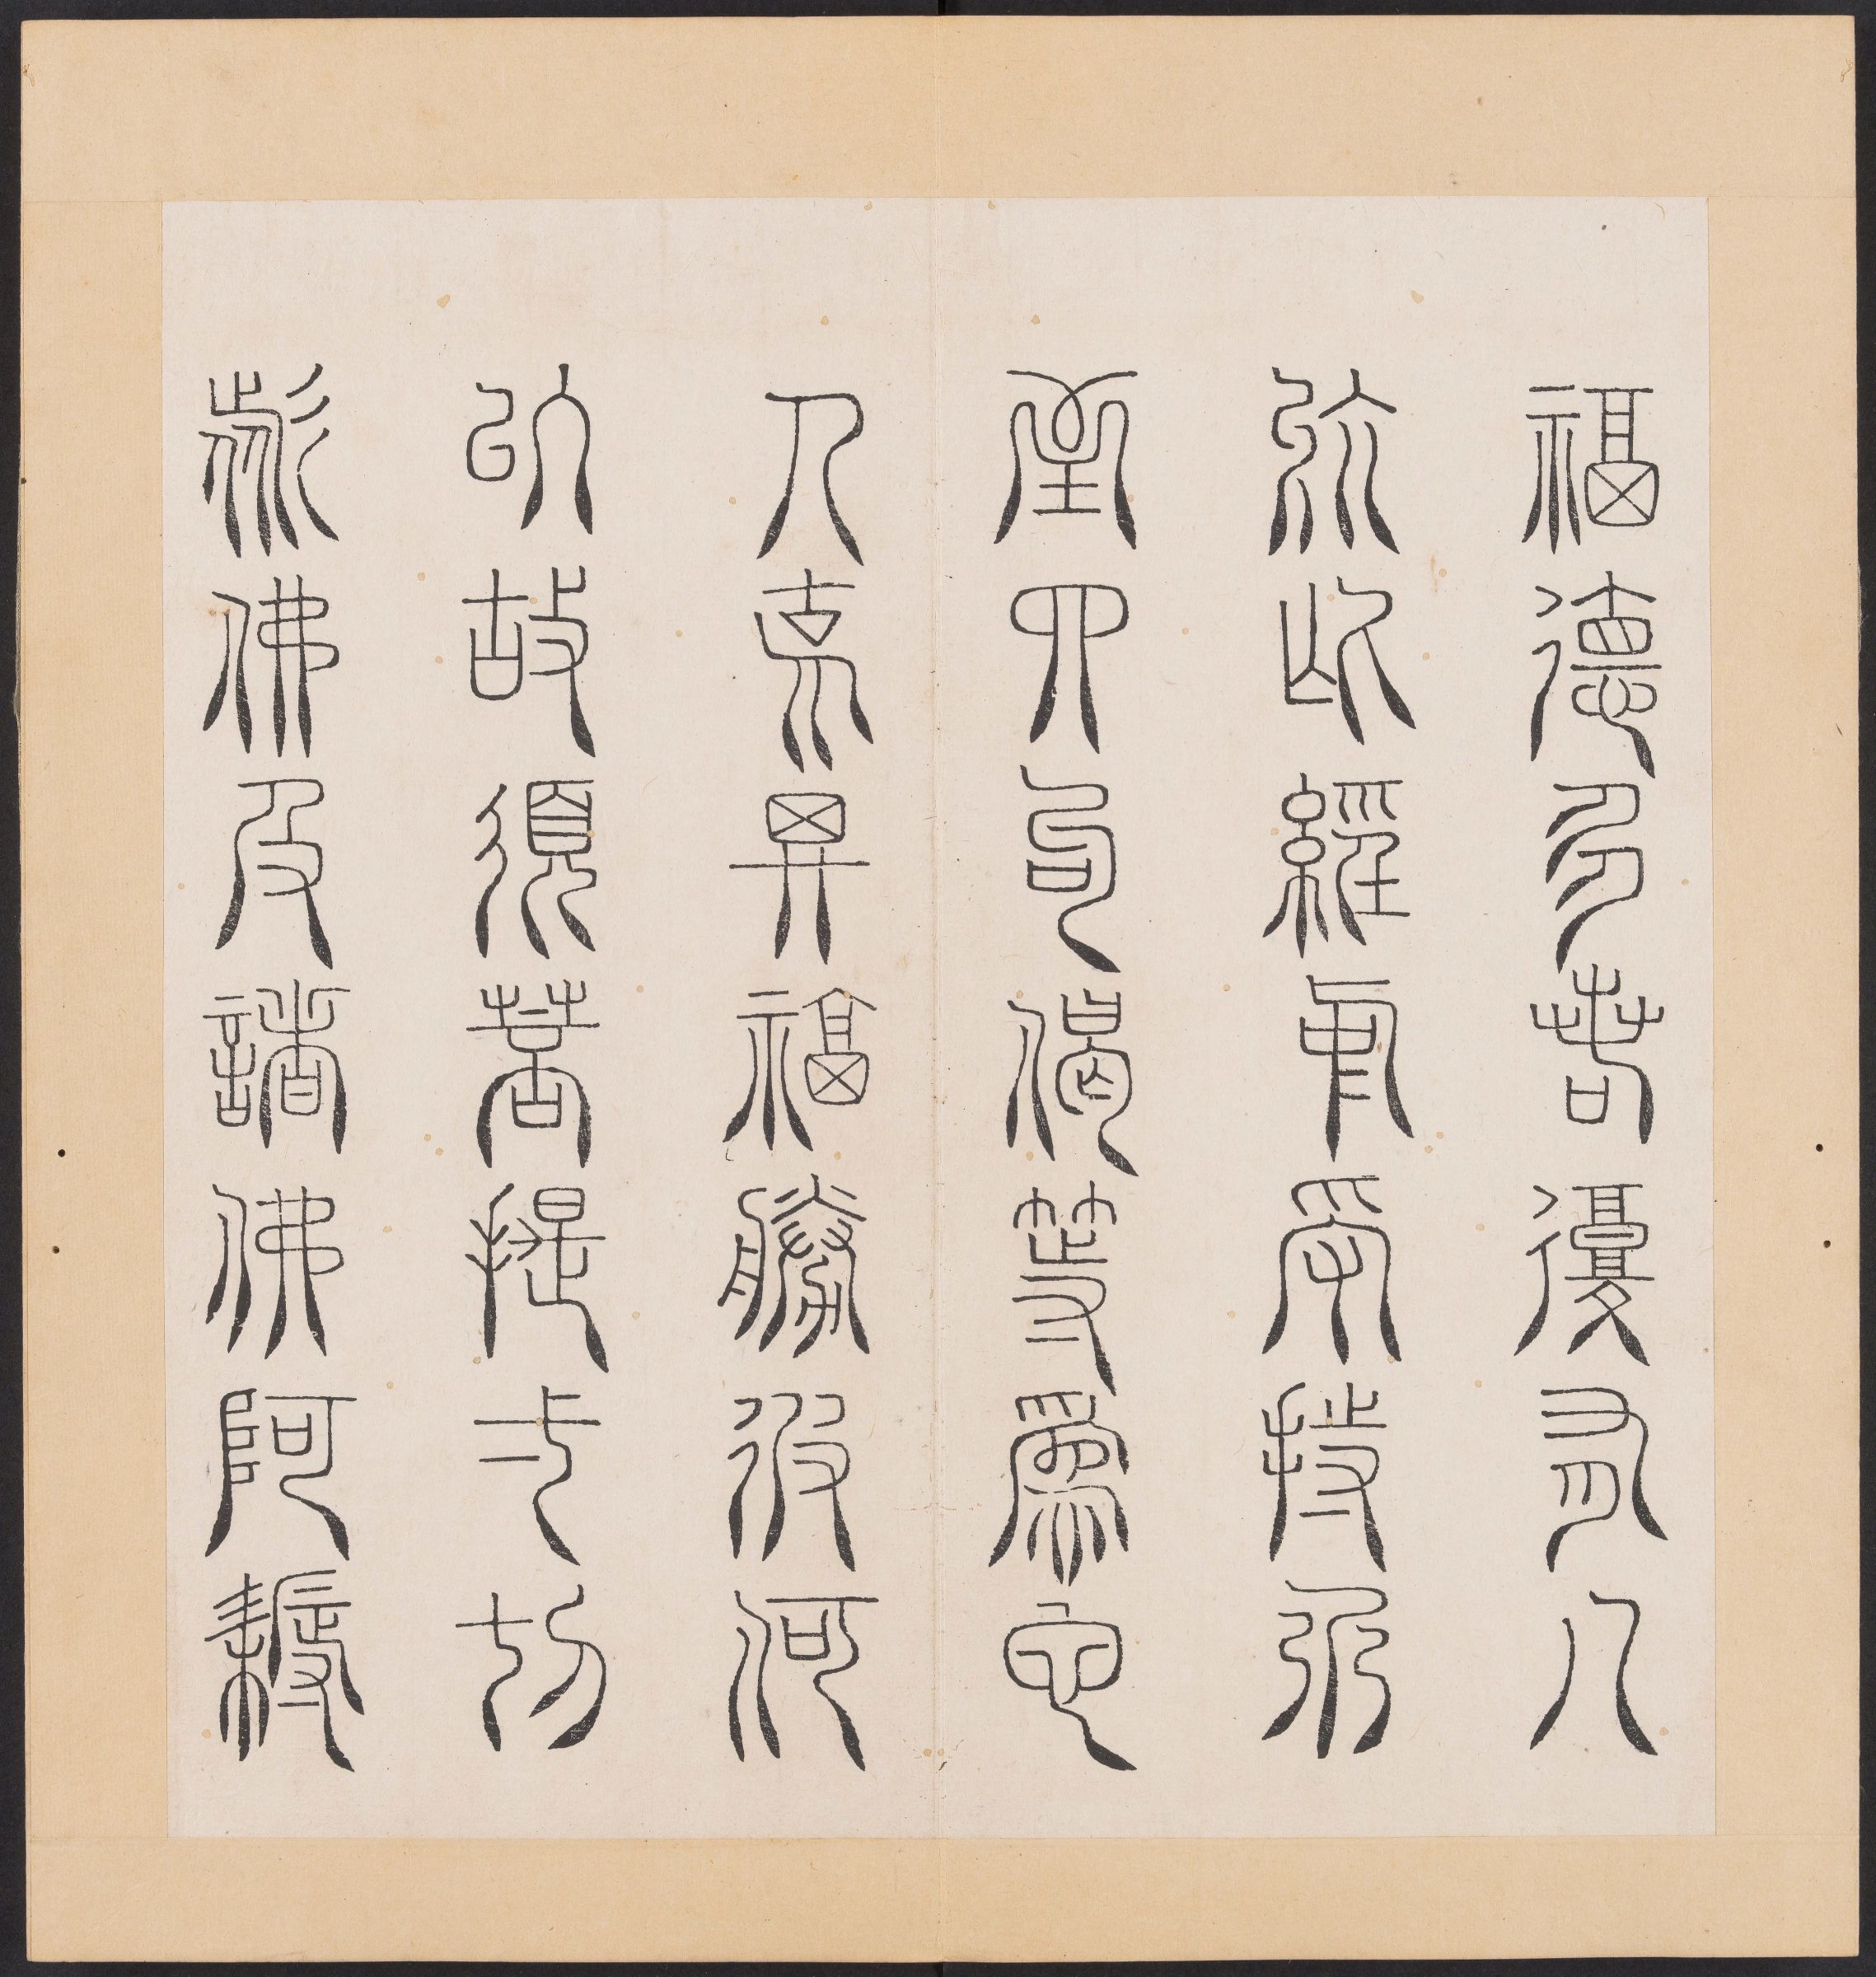 福德多若復有人
於此經中受持乃
至四句偈等為他
人說其福勝彼何
以故須菩提一切
諸佛及諸佛阿耨